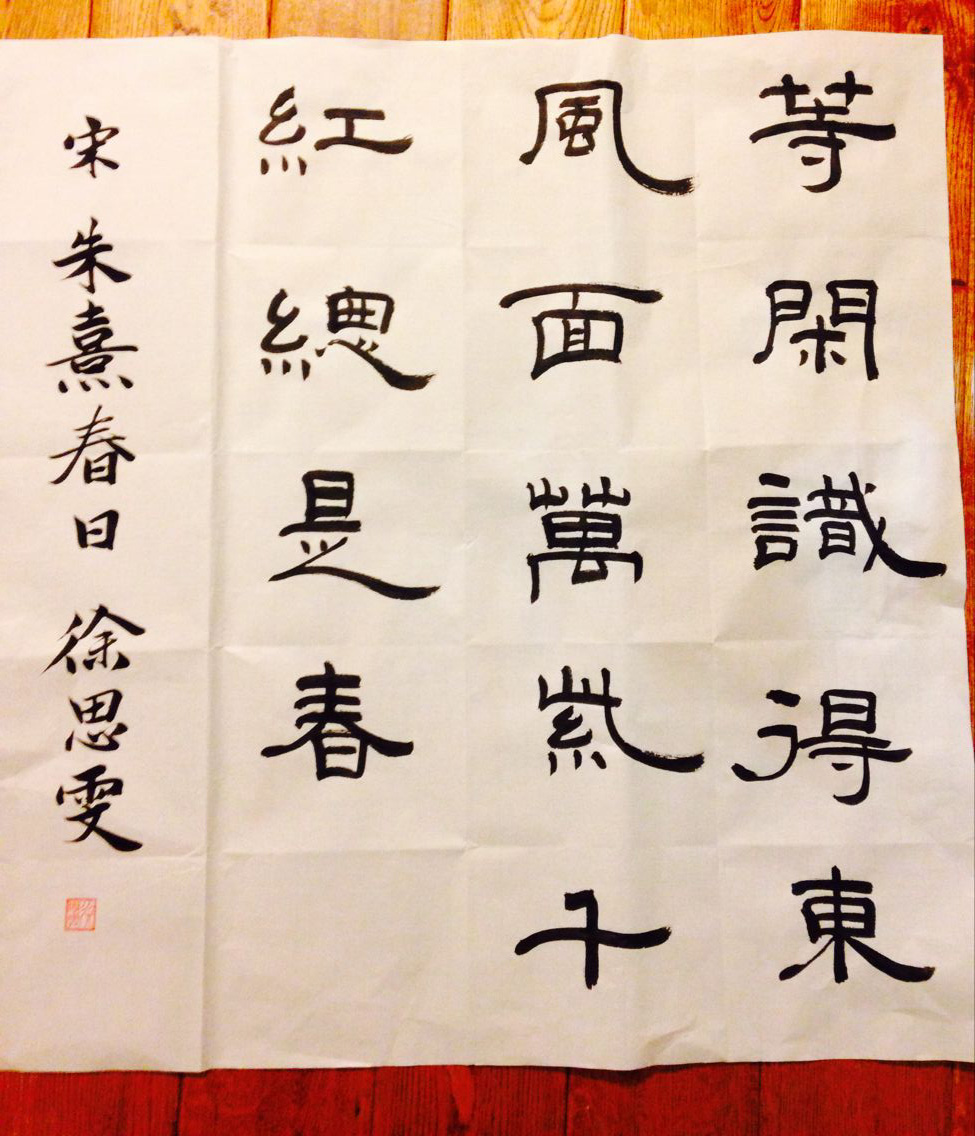 等閑識得東
風面萬紫千
紅總是春
宋 朱熹春日 徐思雯